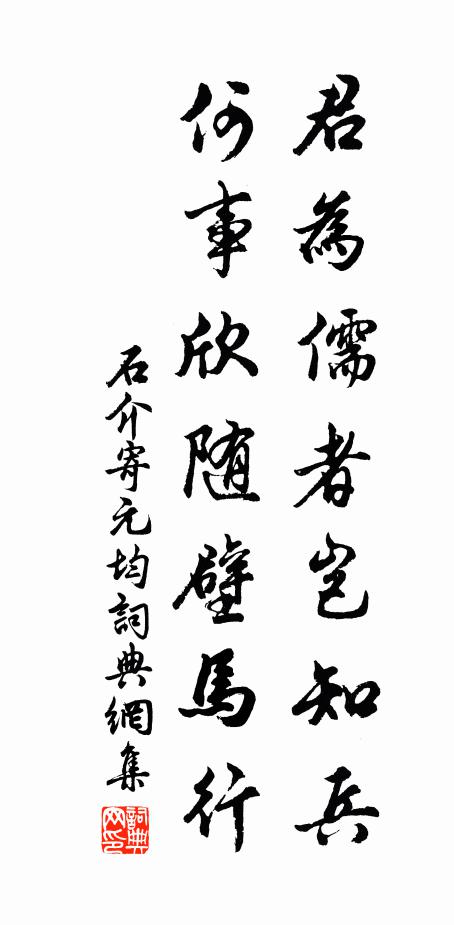 君為儒者豈知兵
何事欣随壁馬行
石介寄元均詞典網集
詞典網印